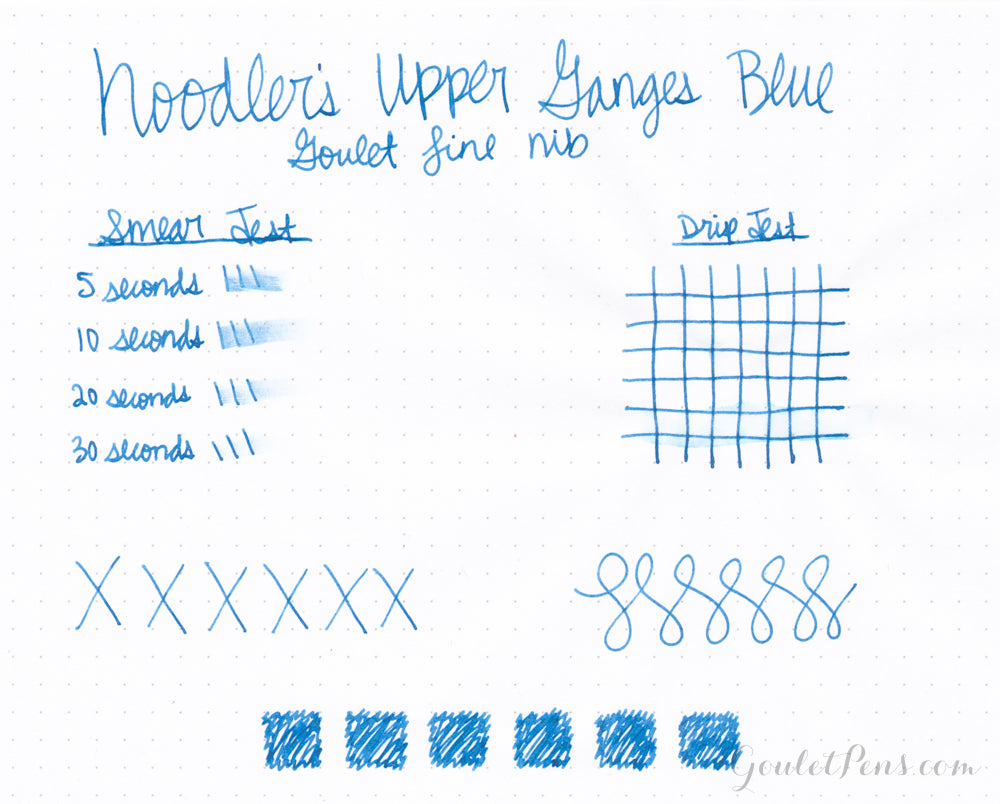 Noodler's Upper Ganges Blue
Goulet fine nib
Smear Test
5 seconds
10 seconds
20 seconds
30 seconds
Drip Test
X X X X X X
GouletPens.com